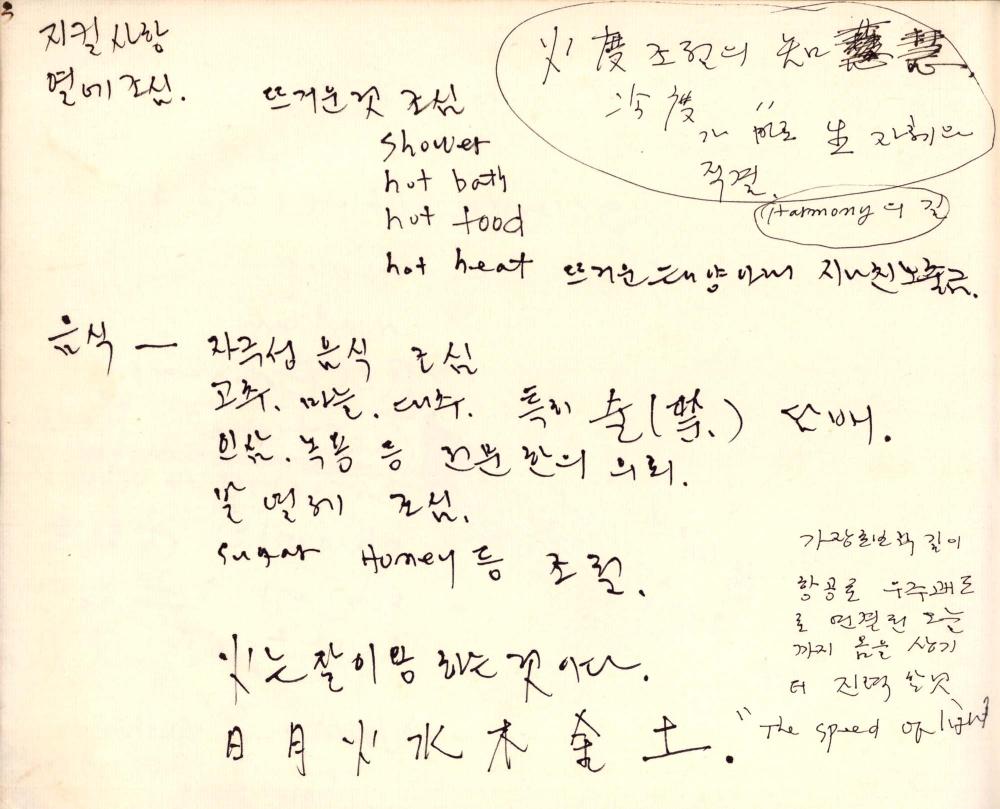 지킬 사항
열에 조심.
火度 조절의 知 慧.
冷度
가 바로 生 지혜와
직결.
Harmony의 길
뜨거운 것 조심
shower
hot bath
hot food
hot heat 뜨거운 태양아래 지나친 노출금.
음식 — 자극성 음식 조심
고추. 마늘. 대추. 특히 술(禁.) 담배.
인삼. 녹용 등 전문 한의 의뢰.
발열에 조심.
sugar Honey 등 조절.
火는 잘이용하는 것이다.
日 月 火 水 木 金 土.
가장 원시적 길이
항공로 우주궤도
로 연결된 오늘
까지 옴을 상기
더 진력 할것
"The speed of light"